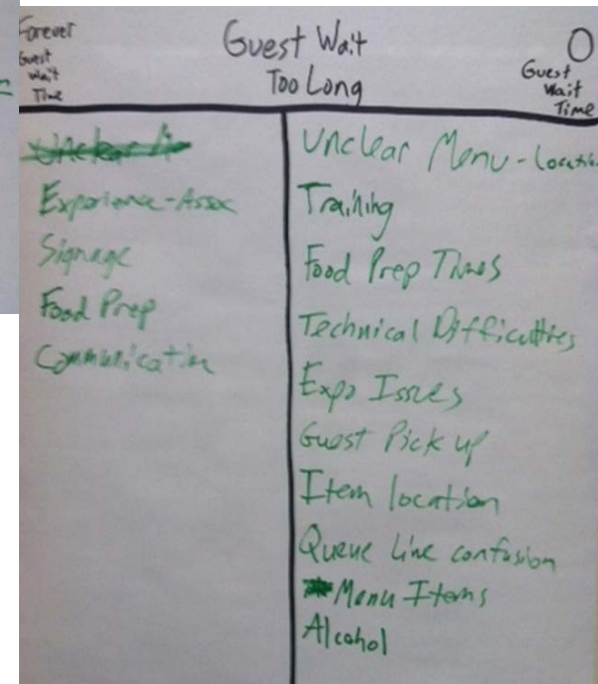 Forever
Guest
Wait
Time
Guest Wait
Too Long
0
Guest
Wait
Time
Experience-Assoc
Signage
Food Prep
Communication
Unclear Menu-Location
Training
Food Prep Times
Technical Difficulties
Expo Issues
Guest Pick up
Item location
Queue Line confusion
Menu Items
Alcohol